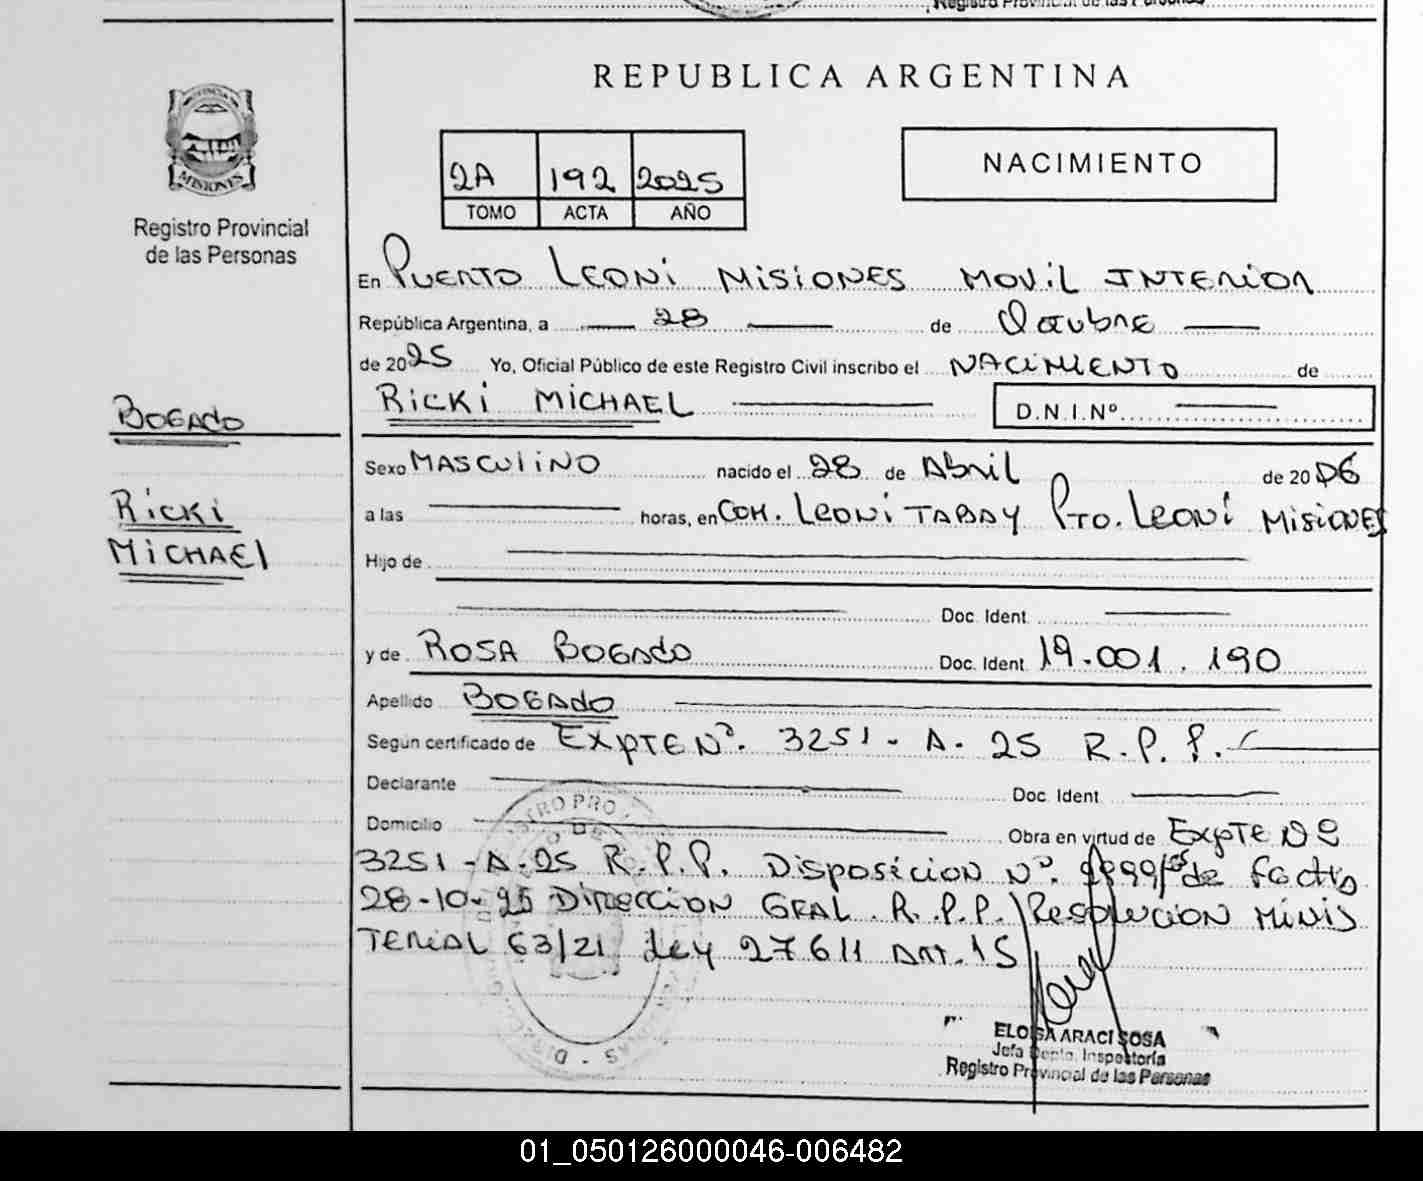 Registro Provincial de las Personas
REPUBLICA ARGENTINA
PROVINCIA DE
MISIONES
Registro Provincial
de las Personas
2A 192 2025
TOMO ACTA AÑO
NACIMIENTO
En PUERTO LEONI MISIONES MOVIL INTERIOR
República Argentina, a 28 de Octubre
de 2025 Yo, Oficial Público de este Registro Civil inscribo el NACIMIENTO de
RICKI MICHAEL D.N.I.Nº
BOGADO
RICKI
MICHAEL
Sexo MASCULINO nacido el 28 de Abril de 2006
a las horas, en COM. LEONI TABAY Pto. Leoni MISIONES
Hijo de
Doc. Ident.
y de ROSA BOGADO Doc. Ident. 19.001.190
Apellido BOGADO
Según certificado de EXPTE Nº. 3251-A-25 R.P.P.
Declarante Doc. Ident.
Domicilio Obra en virtud de EXPTE Nº
3251-A-25 R.P.P. Disposicion Nº. de fecha
28-10-25 Direccion GRAL. R.P.P. Resolucion Minis
terial 63/21 Ley 27611 Art. 15
ELOISA ARACI SOSA
Jefa Depto. Inspectoría
Registro Provincial de las Personas
01_050126000046-006482